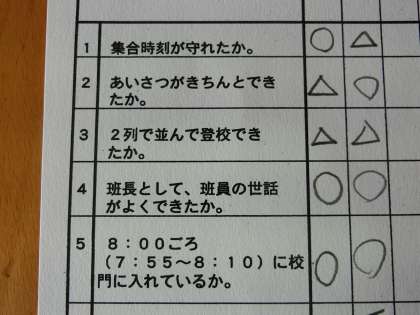 1 集合時刻が守れたか。 ○ △
2 あいさつがきちんとでき △ ○
たか。
3 2列で並んで登校でき △ △
たか。
4 班長として、班員の世話 ○ ○
がよくできたか。
5 8:00ごろ
(7:55~8:10)に校 ○ ○
門に入れているか。